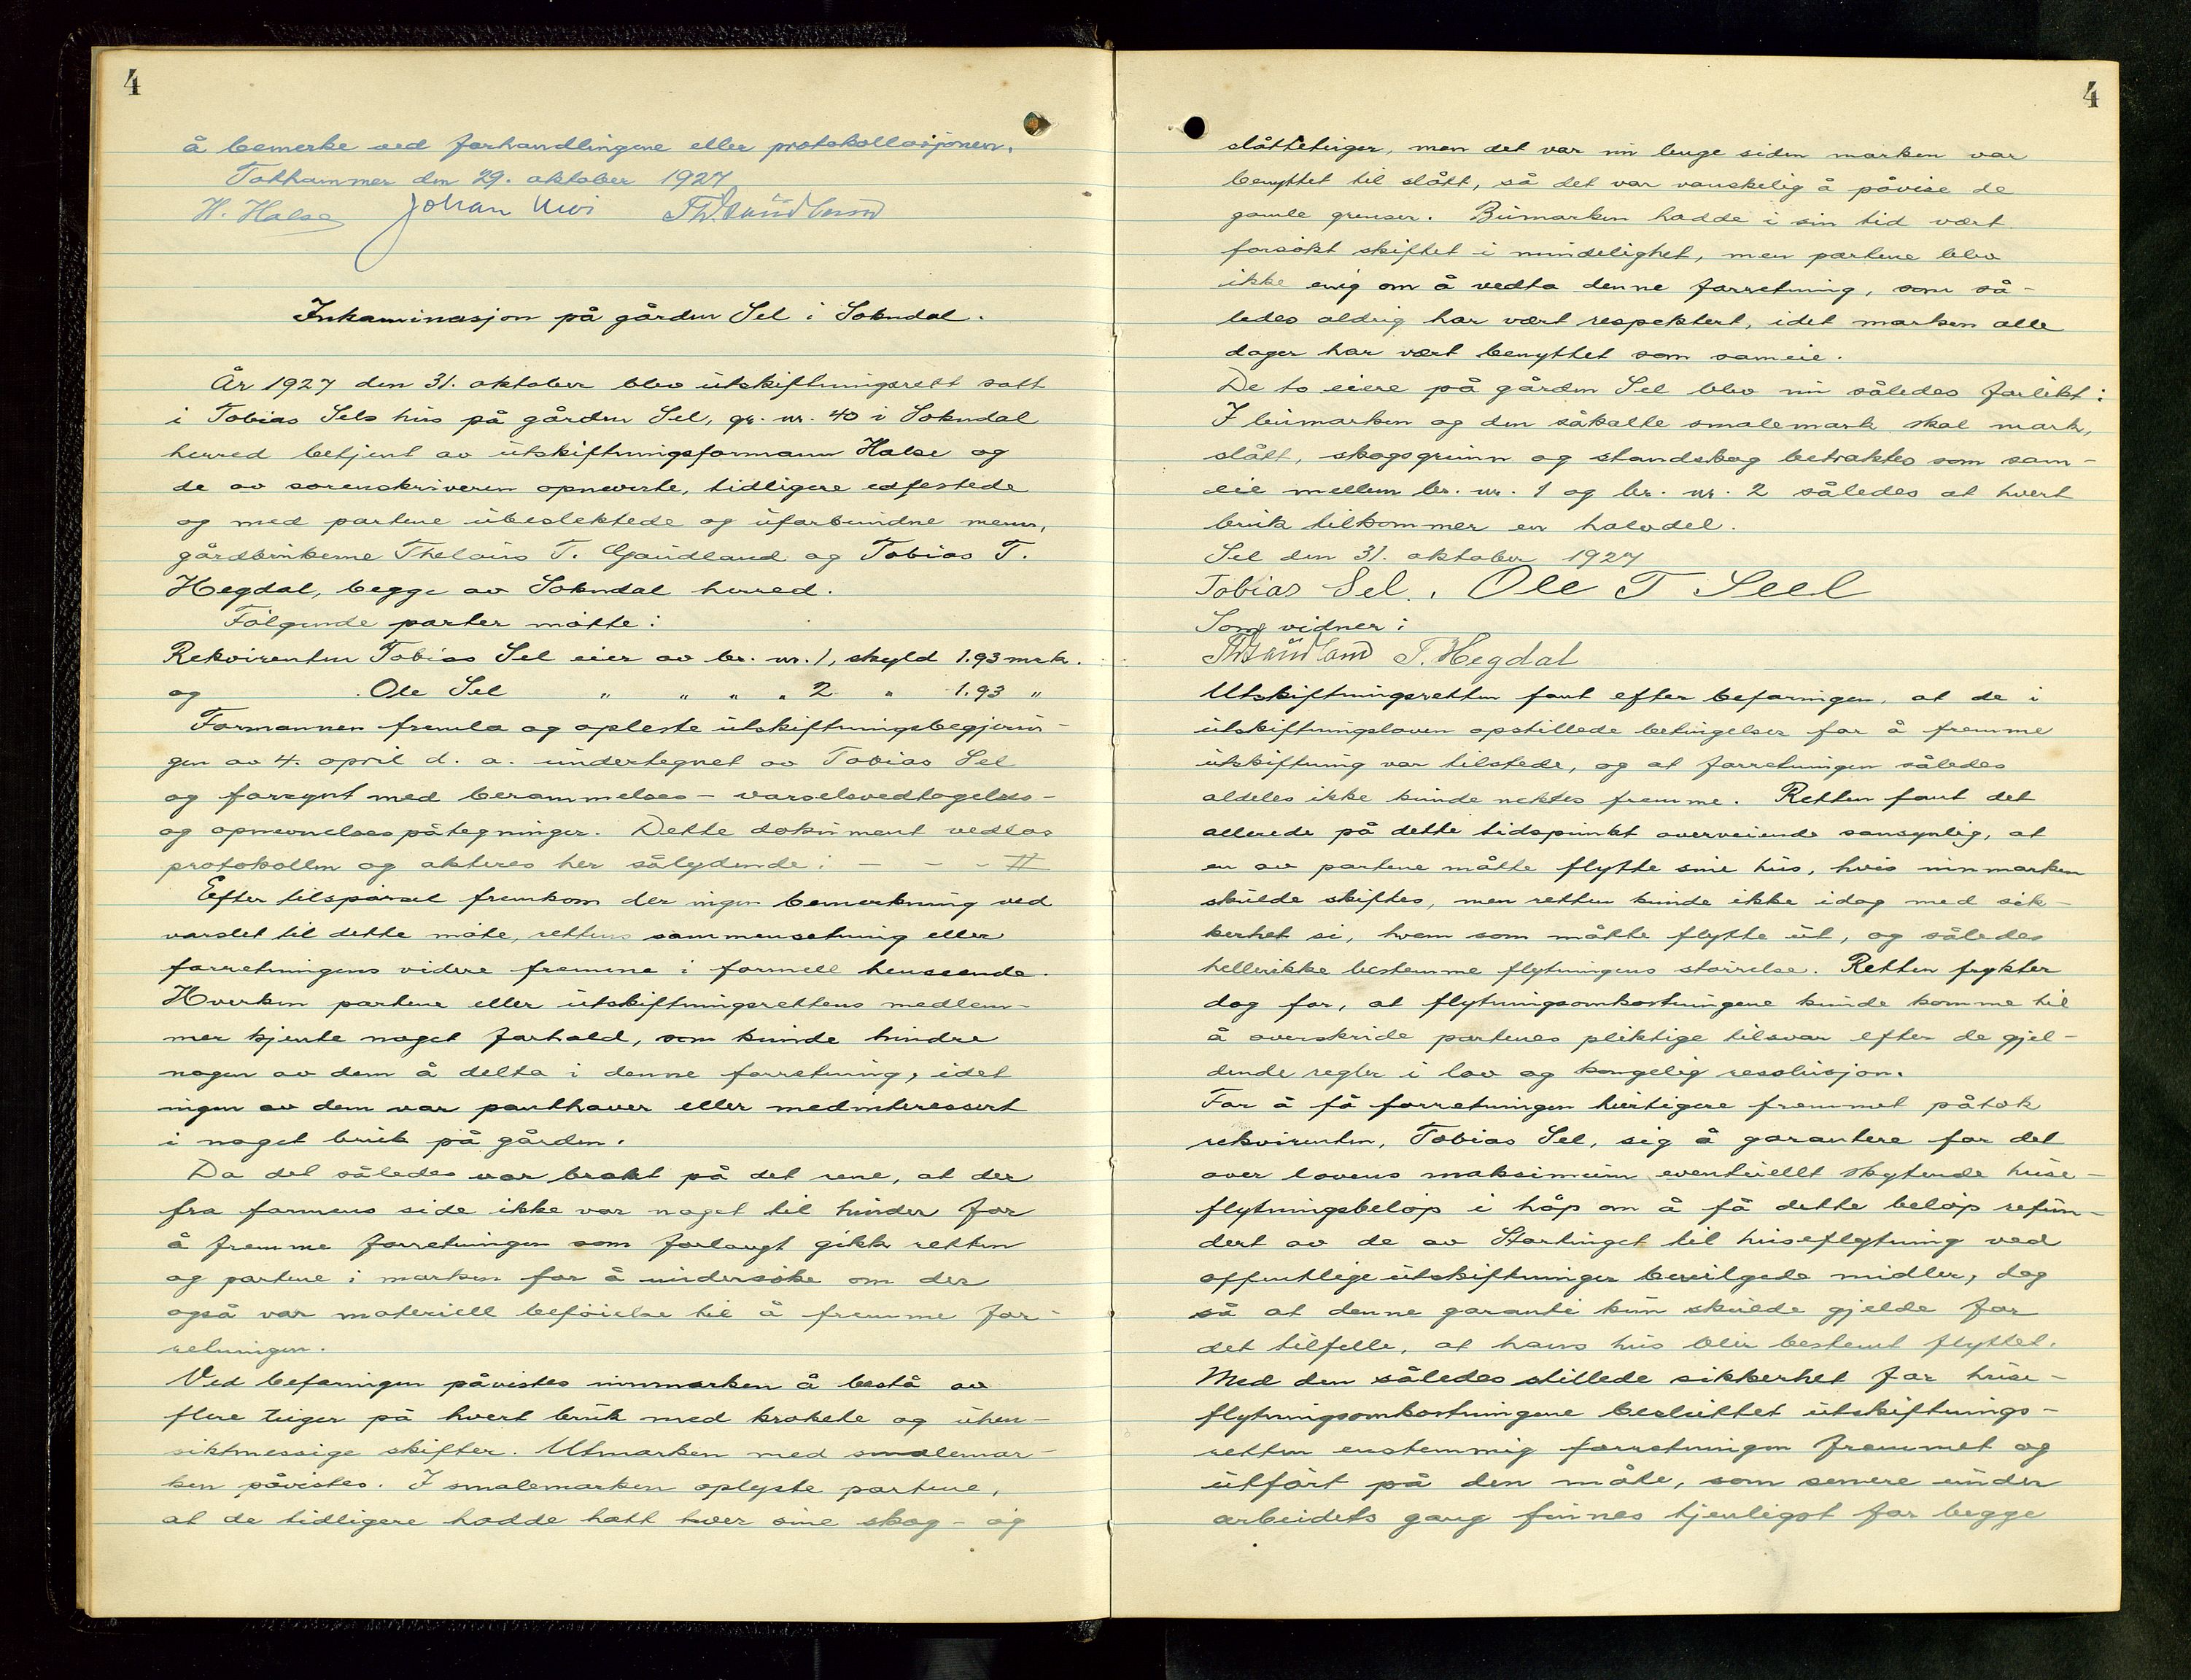 4
å bemerke ved forhandlingene eller protokollasjonen.
Tothammer den 29. oktober 1927
H. Halse Johan Mvi Th. Gaudland
Inkaminasjon på gården Sel i Sokndal.
År 1927 den 31. oktober blev utskiftningsrett satt
i Tobias Sels hus på gården Sel, gr. nr. 40 i Sokndal
herred betjent av utskiftningsformann Halse og
de av sorenskriveren opnevnte, tidligere edfestede
og med partene ubeslektede og uforbundne menn,
gårdbrukerne Thelaus T. Gaudland og Tobias T.
Hegdal, begge av Sokndal herred.
Følgende parter møtte:
Rekvirenten Tobias Sel eier av br. nr. 1, skyld 1.93 mrk.
og Ole Sel " " " " 2 " 1.93 "
Formannen fremla og opleste utskiftningsbegjærin-
gen av 4. april d. a. undertegnet av Tobias Sel
og forsynt med berammelses- varselsvedtagelses-
og opnevnelsespåtegninger. Dette dokument vedlas
protokollen og akteres her sålydende: - - - #
Efter tilspørsel fremkom der ingen bemerkning ved
varslet til dette møte, rettens sammensetning eller
forretningens videre fremme i formell henseende.
Hverken partene eller utskiftningsrettens medlem-
mer kjente noget forhold, som kunde hindre
nogen av dem å delta i denne forretning, idet
ingen av dem var panthaver eller medinteressert
i noget bruk på gården.
Da det således var brakt på det rene, at der
fra formens side ikke var noget til hinder for
å fremme forretningen som forlangt gikk retten
og partene i marken for å undersøke om der
også var materiell beføielse til å fremme for-
retningen.
Ved befaringen påvistes innmarken å bestå av
flere teiger på hvert bruk med krokete og uhen-
siktmessige skifter. Utmarken med smalemar-
ken påvistes. I smalemarken oplyste partene,
at de tidligere hadde hatt hver sine skog- og
4
slåtteteiger, men det var nu lenge siden marken var
benyttet til slått, så det var vanskelig å påvise de
gamle grenser. Bumarken hadde i sin tid vært
forsøkt skiftet i mindelighet, men partene blev
ikke enig om å vedta denne forretning, som så-
ledes aldrig har vært respektert, idet marken alle
dager har vært benyttet som sameie.
De to eiere på gården Sel blev nu således forlikt:
I bumarken og den såkalte smalemark skal mark,
slått, skogsgrunn og standskog betraktes som sam-
eie mellem br. nr. 1 og br. nr. 2 således at hvert
bruk tilkommer en halvdel.
Sel den 31. oktober 1927
Tobias Sel. Ole T Seel
Som vidner:
Th Gaudland T. Hegdal
Utskiftningsretten fant efter befaringen, at de i
utskiftningsloven opstillede betingelser for å fremme
utskiftning var tilstede, og at forretningen således
aldeles ikke kunde nektes fremme. Retten fant det
allerede på dette tidspunkt overveiende sansynlig, at
en av partene måtte flytte sine hus, hvis innmarken
skulde skiftes, men retten kunde ikke idag med sik-
kerhet si, hvem som måtte flytte ut, og således
hellerikke bestemme flytningens størrelse. Retten frykter
dog for, at flytningsomkostningene kunde komme til
å overskride partenes pliktige tilsvar efter de gjel-
dende regler i lov og kongelig resolusjon.
For å få forretningen hurtigere fremmet påtok
rekvirenten, Tobias Sel, sig å garantere for det
over lovens maksimum eventuellt skytende huse-
flytningsbeløp i håp om å få dette beløp refun-
dert av de av Stortinget til huseflytning ved
offentlige utskiftninger bevilgede midler, dog
så at denne garanti kun skulde gjelde for
det tilfelle, at hans hus blir bestemt flyttet.
Med den således stillede sikkerhet for huse-
flytningsomkostningene besluttet utskiftnings-
retten enstemmig forretningen fremmet og
utført på den måte, som senere under
arbeidets gang finnes tjenligst for begge